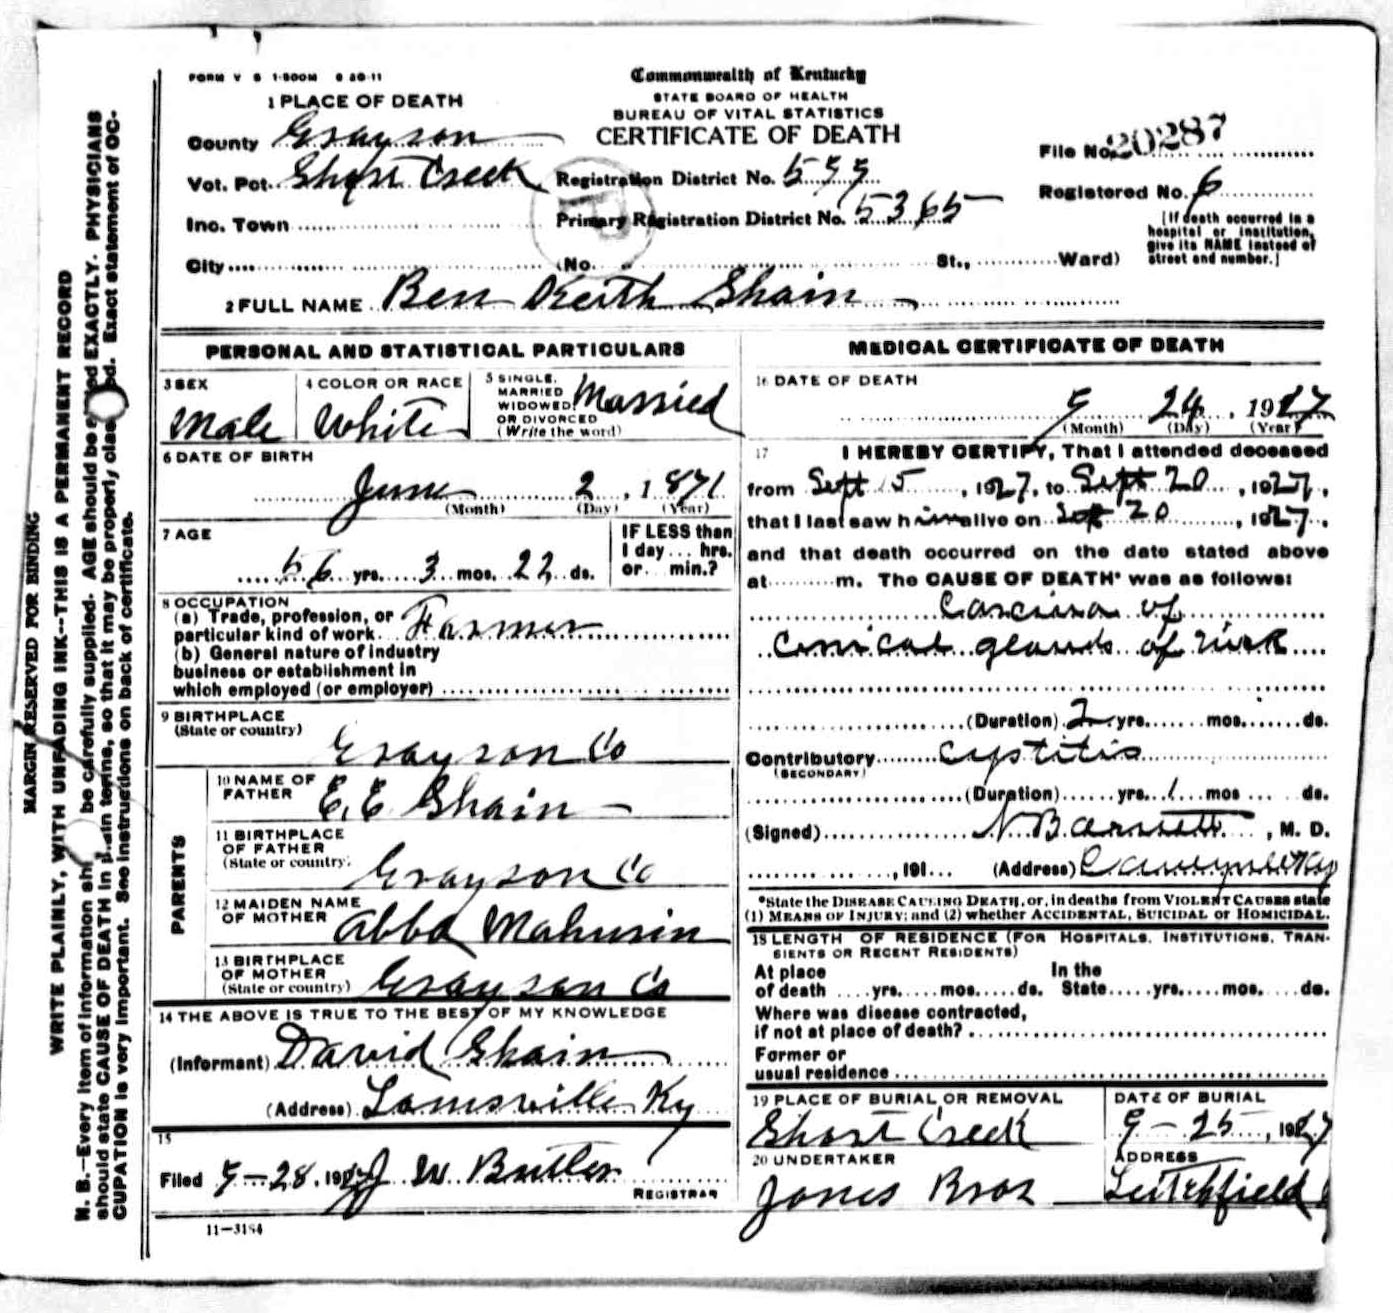 FORM V S 1-500M 6 20-11
Commonwealth of Kentucky
STATE BOARD OF HEALTH
BUREAU OF VITAL STATISTICS
CERTIFICATE OF DEATH
1 PLACE OF DEATH
County Grayson
Vot. Pct. Short Creek
Inc. Town
City (No. St., Ward)
Registration District No. 555
Primary Registration District No. 5365
File No. 20287
Registered No. 6
[If death occurred in a
hospital or institution,
give its NAME instead of
street and number.]
2 FULL NAME Ben Keith Shain
PERSONAL AND STATISTICAL PARTICULARS
3 SEX
Male
4 COLOR OR RACE
White
5 SINGLE,
MARRIED
WIDOWED,
OR DIVORCED
(Write the word)
Married
6 DATE OF BIRTH
June 2, 1871
(Month) (Day) (Year)
7 AGE
56 yrs. 3 mos. 22 ds.
IF LESS than
1 day ... hrs.
or ... min.?
8 OCCUPATION
(a) Trade, profession, or
particular kind of work Farmer
(b) General nature of industry
business or establishment in
which employed (or employer)
9 BIRTHPLACE
(State or country)
Grayson Co
PARENTS
10 NAME OF
FATHER E. E. Shain
11 BIRTHPLACE
OF FATHER
(State or country)
Grayson Co
12 MAIDEN NAME
OF MOTHER Abba Mahurin
13 BIRTHPLACE
OF MOTHER
(State or country) Grayson Co
14 THE ABOVE IS TRUE TO THE BEST OF MY KNOWLEDGE
(Informant) David Shain
(Address) Louisville Ky
15
Filed 9-28, 1927 J W Butler
REGISTRAR
11-3184
MEDICAL CERTIFICATE OF DEATH
16 DATE OF DEATH
9 24, 1927
(Month) (Day) (Year)
17 I HEREBY CERTIFY, That I attended deceased
from Sept 15, 1927, to Sept 20, 1927,
that I last saw him alive on Sept 20, 1927,
and that death occurred on the date stated above
at m. The CAUSE OF DEATH* was as follows:
of
glands of neck
(Duration) 2 yrs. mos. ds.
Contributory cystitis
(SECONDARY)
(Duration) yrs. 1 mos ds.
(Signed) , M. D.
, 191 (Address)
*State the DISEASE CAUSING DEATH, or, in deaths from VIOLENT CAUSES state
(1) MEANS OF INJURY; and (2) whether ACCIDENTAL, SUICIDAL or HOMICIDAL.
18 LENGTH OF RESIDENCE (FOR HOSPITALS, INSTITUTIONS, TRAN-
SIENTS OR RECENT RESIDENTS)
At place In the
of death yrs. mos. ds. State yrs. mos. ds.
Where was disease contracted,
if not at place of death?
Former or
usual residence
19 PLACE OF BURIAL OR REMOVAL
Short Creek
DATE OF BURIAL
9-25, 1927
20 UNDERTAKER
Jones Bros
ADDRESS
Leitchfield
MARGIN RESERVED FOR BINDING
WRITE PLAINLY, WITH UNFADING INK--THIS IS A PERMANENT RECORD
N. B.--Every item of information should be carefully supplied. AGE should be stated EXACTLY. PHYSICIANS
should state CAUSE OF DEATH in plain terms, so that it may be properly classified. Exact statement of OC-
CUPATION is very important. See instructions on back of certificate.